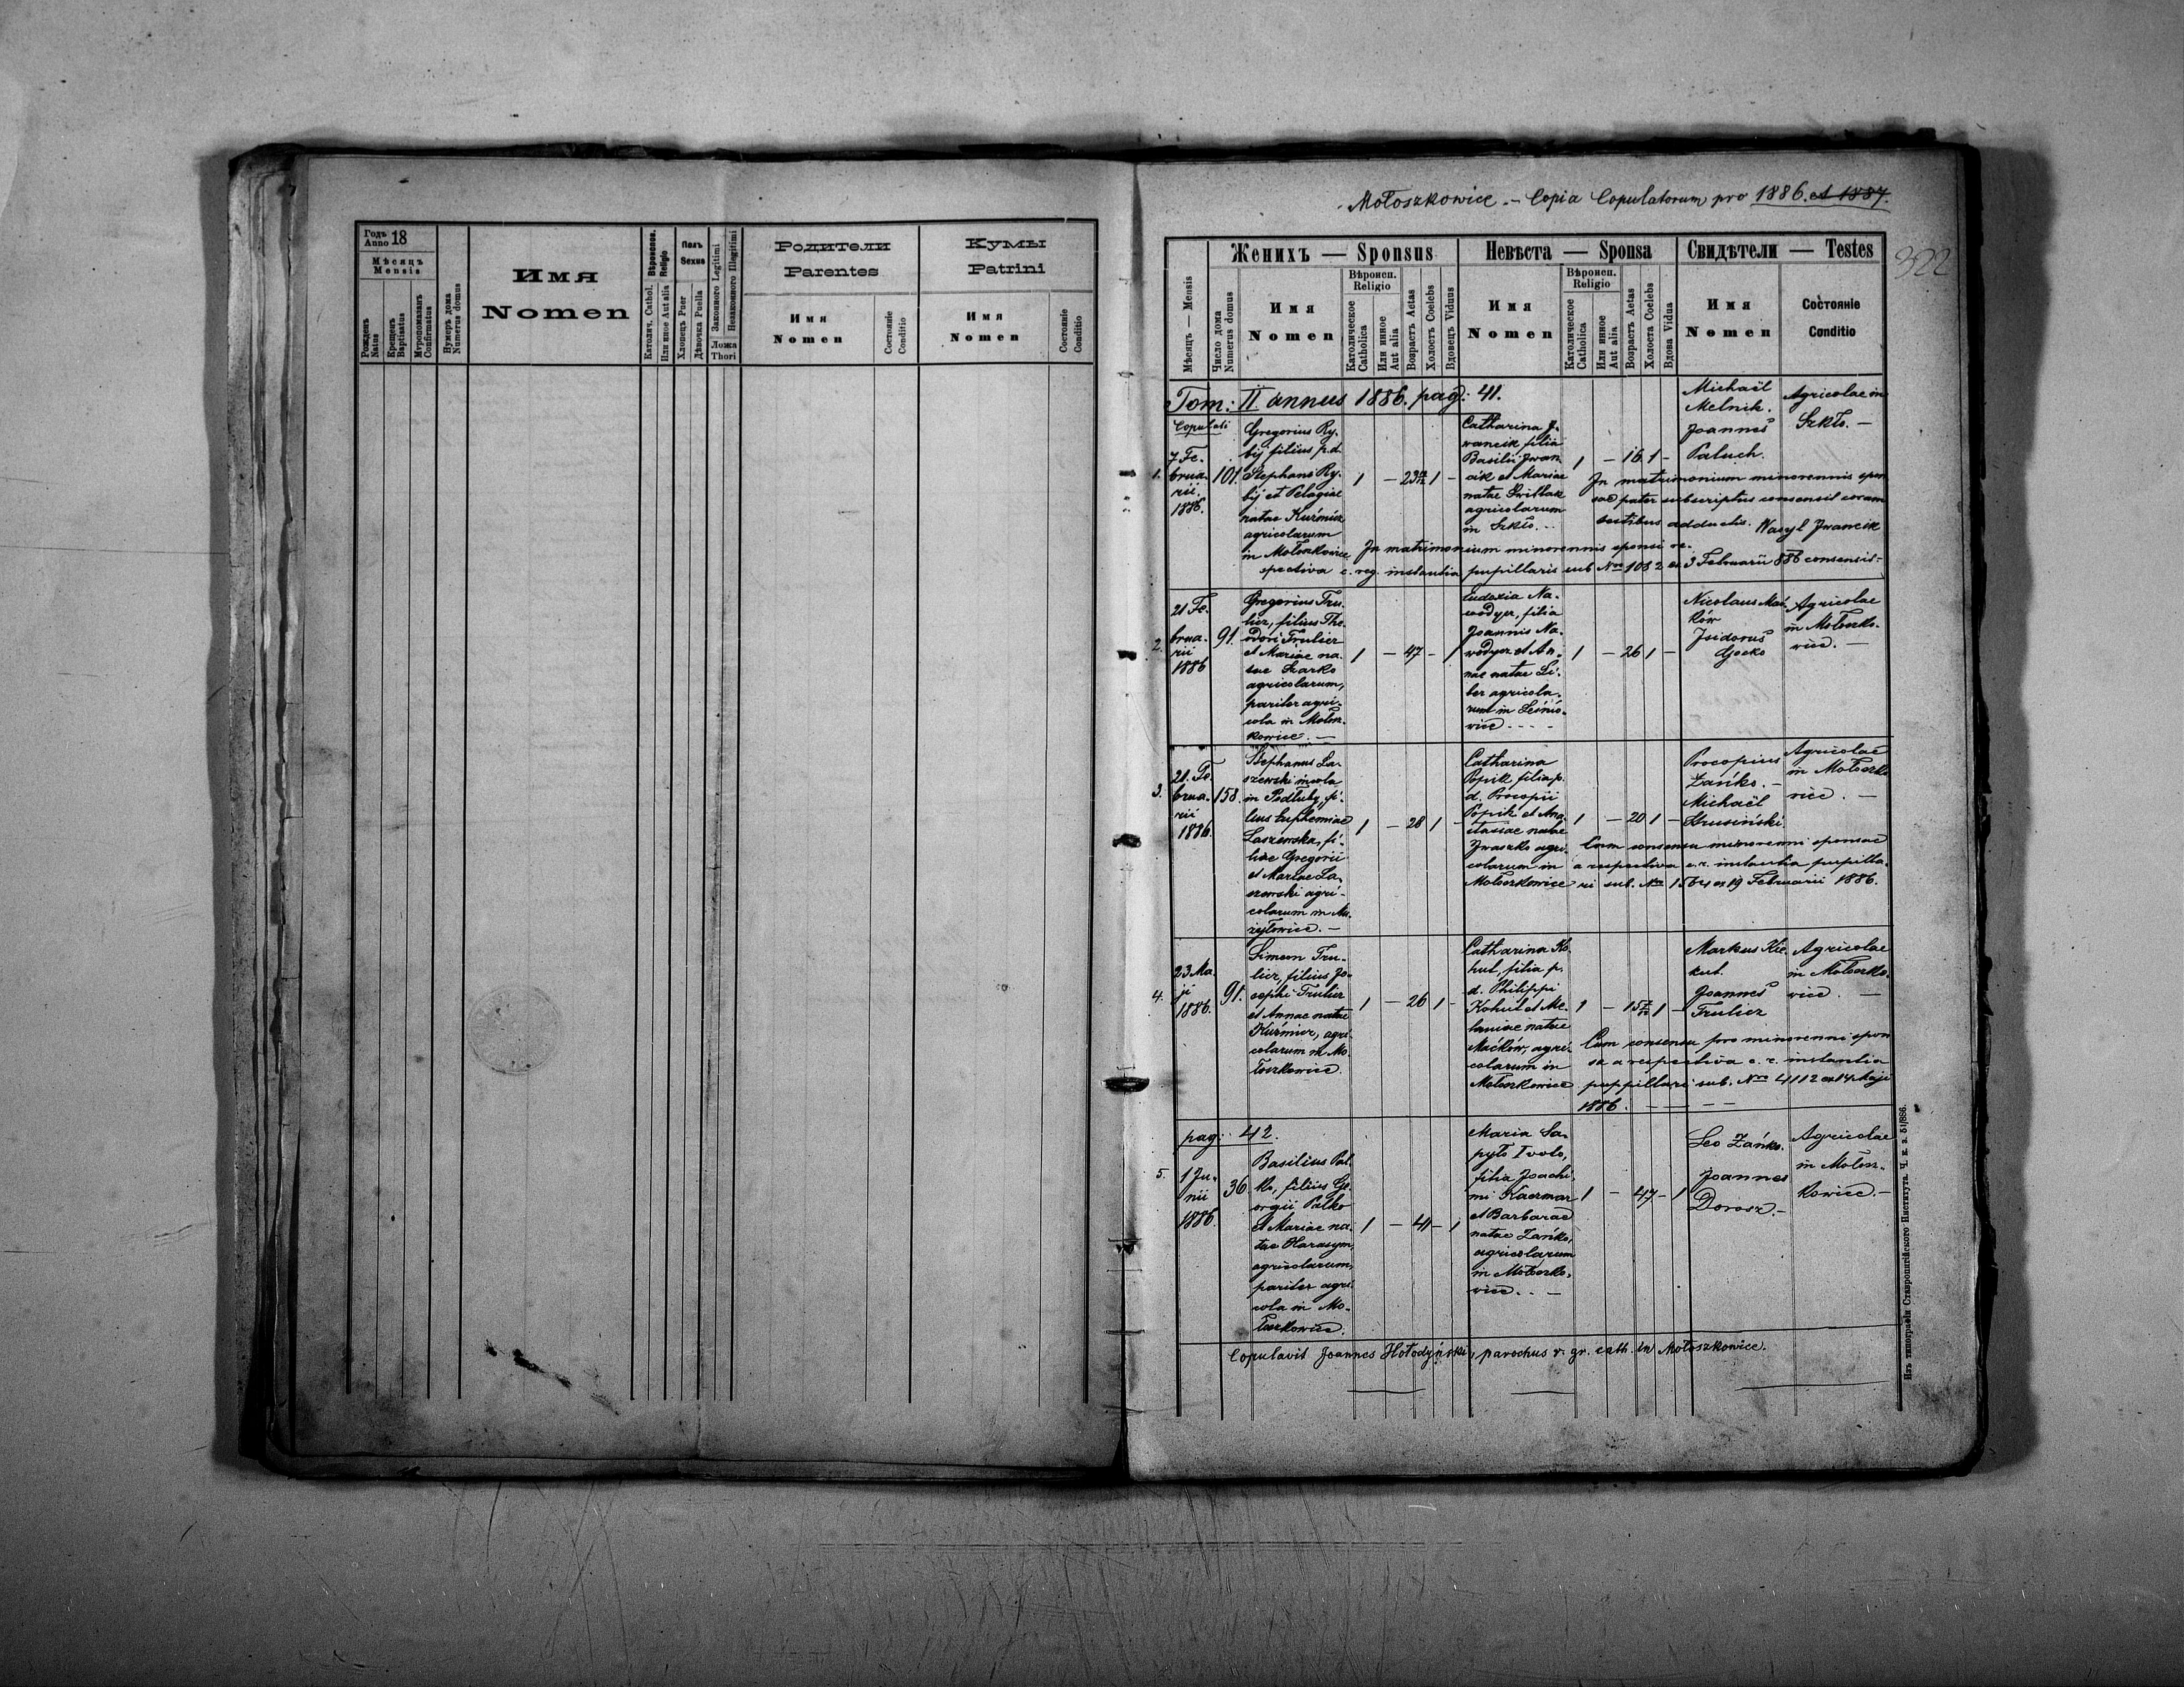 Годъ
Anno 18
Мѣсяцъ
Mensis
Рожденъ
Natus
Крещенъ
Baptisatus
Мѵропомазанъ
Confirmatus
Нумеръ дома
Numerus domus
Имя
Nomen
Вѣроиспов.
Religio
Католич. Cathol.
Или иное Aut alia
Полъ
Sexus
Хлопецъ Puer
Дѣвочка Puella
Законного Legitimi
Незаконного Illegitimi
Ложа
Thori
Родители
Parentes
Имя
Nomen
Состояніе
Conditio
Кумы
Patrini
Имя
Nomen
Состояніе
Conditio
Mołoszkowice. – Copia Copulatorum pro 1886. et 1887.
322
Мѣсяцъ — Mensis
Число дома
Numerus domus
Женихъ — Sponsus
Имя
Nomen
Вѣроисп.
Religio
Католическое
Catholica
Или инное
Aut alia
Возрастъ Aetas
Холостъ Coelebs
Вдовецъ Viduus
Невѣста — Sponsa
Имя
Nomen
Вѣроисп.
Religio
Католическое
Catholica
Или инное
Aut alia
Возрастъ Aetas
Холоста Coelebs
Вдова Vidua
Свидѣтели — Testes
Имя
Nomen
Состоянiе
Conditio
Tom: II annus 1886. pag: 41.
Copulati
1.
7 Fe-
brua-
rii
1886.
101.
Gregorius Ry-
bij filius p.d.
Stephani Ry-
bij et Pelagiae
natae Kuźmicz
agricolarum
in Mołoszkowice
1 – 23 1 –
Catharina J-
wancik filia
Basilii Jwan-
cik et Mariae
natae
agricolarum
in Szkło. –
1 – 16 1 –
Michaël
Melnik.
Joannes
Paluch.
Agricolae in
Szkło. –
In matrimonium minorennis spon-
sae pater subscriptus consensit coram
testibus adductis. Wasyl Jwancik
In matrimonium minorennis sponsi re-
spectiva c. reg. instantia pupillaris sub Nro 1082 ex 3 Februarii 886 consensit –
2.
21 Fe-
brua-
rii
1886
91.
Gregorius Tru-
licz, filius The-
odori Trulicz
et Mariae na-
tae Szarko
agricolarum,
pariter agri-
cola in Mołosz-
kowice. –
1 – 47 – 1
Eudoxia Na-
wodycz, filia
Joannis Na-
wodycz et An-
nae natae Li-
ber agricola-
rum in
wice – – –
1 – 26 1 –
Nicolaus Mać-
ków
Isidorus
Agricolae
in Mołoszko-
wice. –
3.
21. Fe-
brua-
rii
1886.
158.
Stephanus La-
szewski incola
in Podłuby, fi-
lius Euphemiae
Laszewska, fi-
liae Gregorii
et Mariae La-
szewski agri-
colarum in Mu-
żyłowice. –
1 – 28 1 –
Catharina
Popik filia p.
d. Procopii
Popik et Ana-
stasiae natae
Jwaszko agri-
colarum in
Mołoszkowice
1 – 20 1 –
Procopius
Zańko. –
Michaël
Hrusiński.
Agricolae
in Mołoszko-
wice. –
Cum consensu minorenni sponsae
a respectiva c. r. instantia pupilla-
ri sub. Nro 1564 ex 19 Februarii 1886.
4.
23 Ma-
ji
1886.
91.
Simeon Tru-
licz, filius Jo-
sephi Trulicz
et Annae natae
Kuźmicz, agri-
colarum in Mo-
łoszkowice.
1 – 26 1 –
Catharina Ko-
hut, filia p.
d. Philippi
Kohut et Me-
laniae natae
Maćków, agri-
colarum in
Mołoszkowice
1 – 15 1 –
Markus Kie-
kut.
Joannes
Trulicz
Agricolae
in Mołoszko-
wice. –
Cum consensu pro minorenni spon-
sa a respectiva c. r. instantia
puppillari sub. Nro 4112 ex 14 Maji
1886. – – – –
pag: 42.
5.
1 Ju-
nii
1886.
36
Basilius Pal-
ko, filius Ge-
orgii Palko
et Mariae na-
tae Harasym,
agricolarum,
pariter agri-
cola in Mo-
łoszkowice.
1 – 41 – 1
Maria Sa-
pyło I voto,
filia Joachi-
mi Kaczmar
et Barbarae
natae Zańko,
agricolarum
in Mołoszko-
wice. – –
1 – 47 – 1
Leo Zańko.
Joannes
Dorosz. –
Agricolae
in Mołosz-
kowice. –
Copulavit Joannes Hołodyński, parochus r. gr. cath. in Mołoszkowice.
Изъ типографіи Ставропигійского Института. Ч. к. з. 51/886.